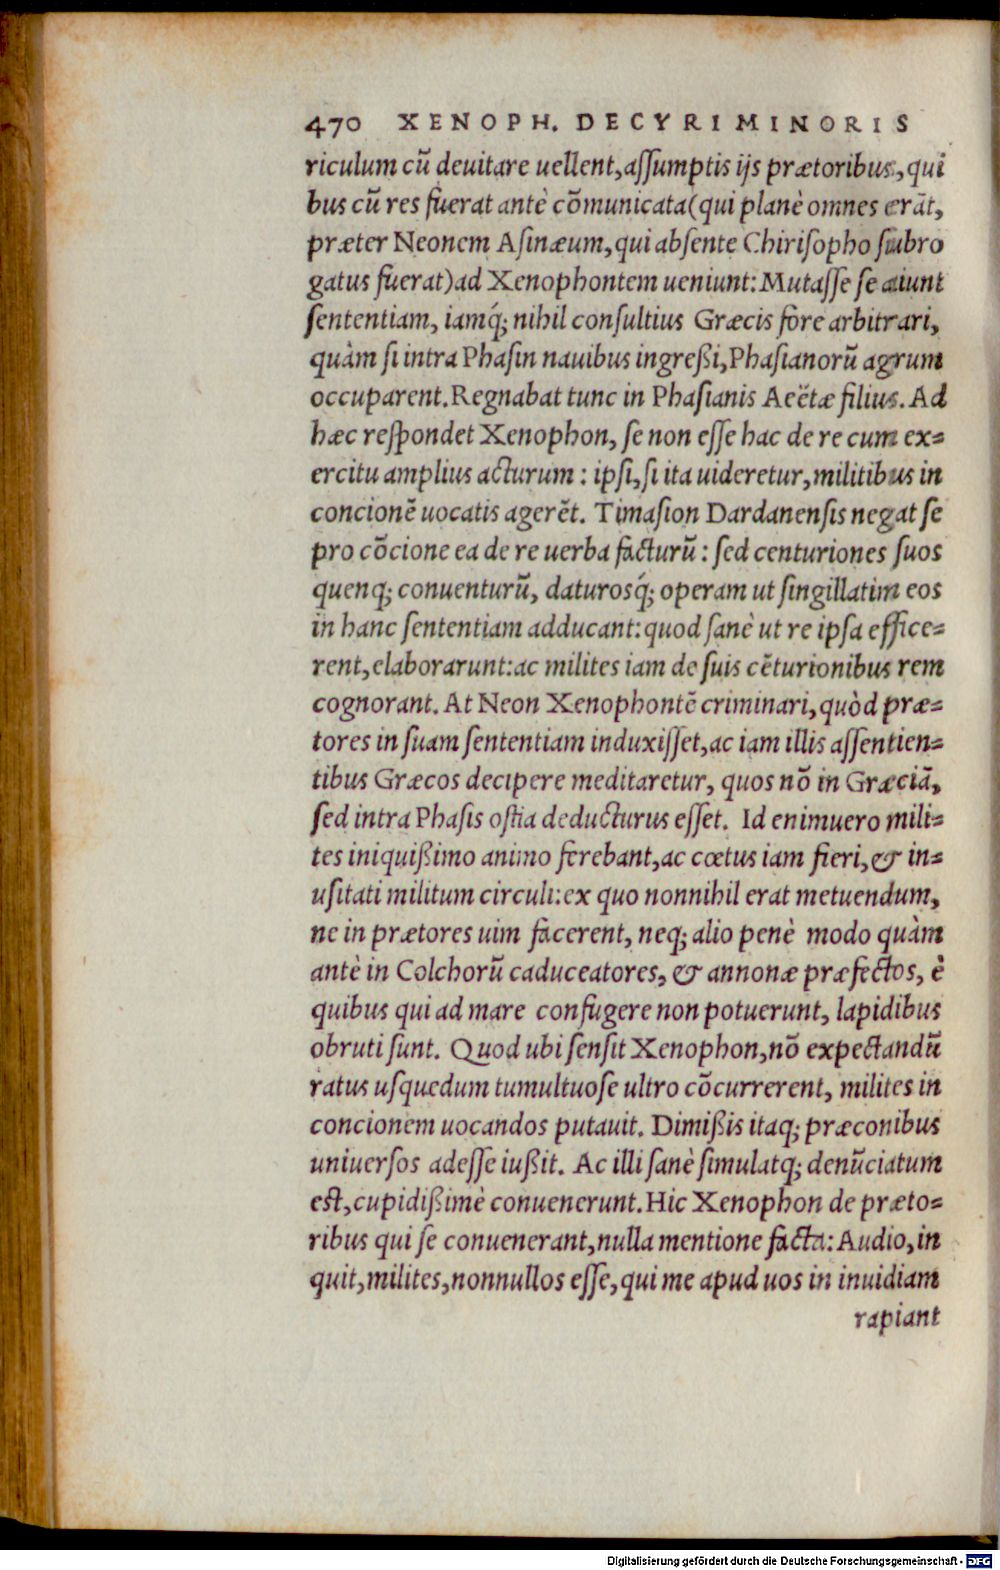 470 XENOPH. DE CYRI MINORIS
riculum cũ deuitare uellent, aſſumptis ijs prætoribus, qui
bus cũ res fuerat antè cõmunicata (qui planè omnes erãt,
præter Neonem Aſinæum, qui abſente Chiriſopho ſubro
gatus fuerat) ad Xenophontem ueniunt: Mutaſſe ſe aiunt
ſententiam, iamq́; nihil conſultius Græcis fore arbitrari,
quàm ſi intra Phaſin nauibus ingreßi, Phaſianorũ agrum
occuparent. Regnabat tunc in Phaſianis Aeëtæ filius. Ad
hæc reſpondet Xenophon, ſe non eſſe hac de re cum ex=
ercitu amplius acturum: ipſi, ſi ita uideretur, militibus in
concionẽ uocatis agerẽt. Timaſion Dardanenſis negat ſe
pro cõcione ea de re uerba facturũ: ſed centuriones ſuos
quenq; conuenturũ, daturosq́; operam ut ſingillatim eos
in hanc ſententiam adducant: quod ſanè ut re ipſa effice=
rent, elaborarunt: ac milites iam de ſuis cẽturionibus rem
cognorant. At Neon Xenophontẽ criminari, quòd præ=
tores in ſuam ſententiam induxiſſet, ac iam illis aſſentien=
tibus Græcos decipere meditaretur, quos nõ in Græciã,
ſed intra Phaſis oſtia deducturus eſſet. Id enimuero mili=
tes iniquißimo animo ferebant, ac cœtus iam fieri, & in=
uſitati militum circuli: ex quo nonnihil erat metuendum,
ne in prætores uim facerent, neq; alio penè modo quàm
antè in Colchorũ caduceatores, & annonæ præfectos, è
quibus qui ad mare confugere non potuerunt, lapidibus
obruti ſunt. Quod ubi ſenſit Xenophon, nõ expectandũ
ratus uſquedum tumultuoſe ultro cõcurrerent, milites in
concionem uocandos putauit. Dimißis itaq; præconibus
uniuerſos adeſſe iußit. Ac illi ſanè ſimulatq; denũciatum
eſt, cupidißimè conuenerunt. Hic Xenophon de præto=
ribus qui ſe conuenerant, nulla mentione facta: Audio, in
quit, milites, nonnullos eſſe, qui me apud uos in inuidiam
rapiant
Digitalisierung gefördert durch die Deutsche Forschungsgemeinschaft - DFG